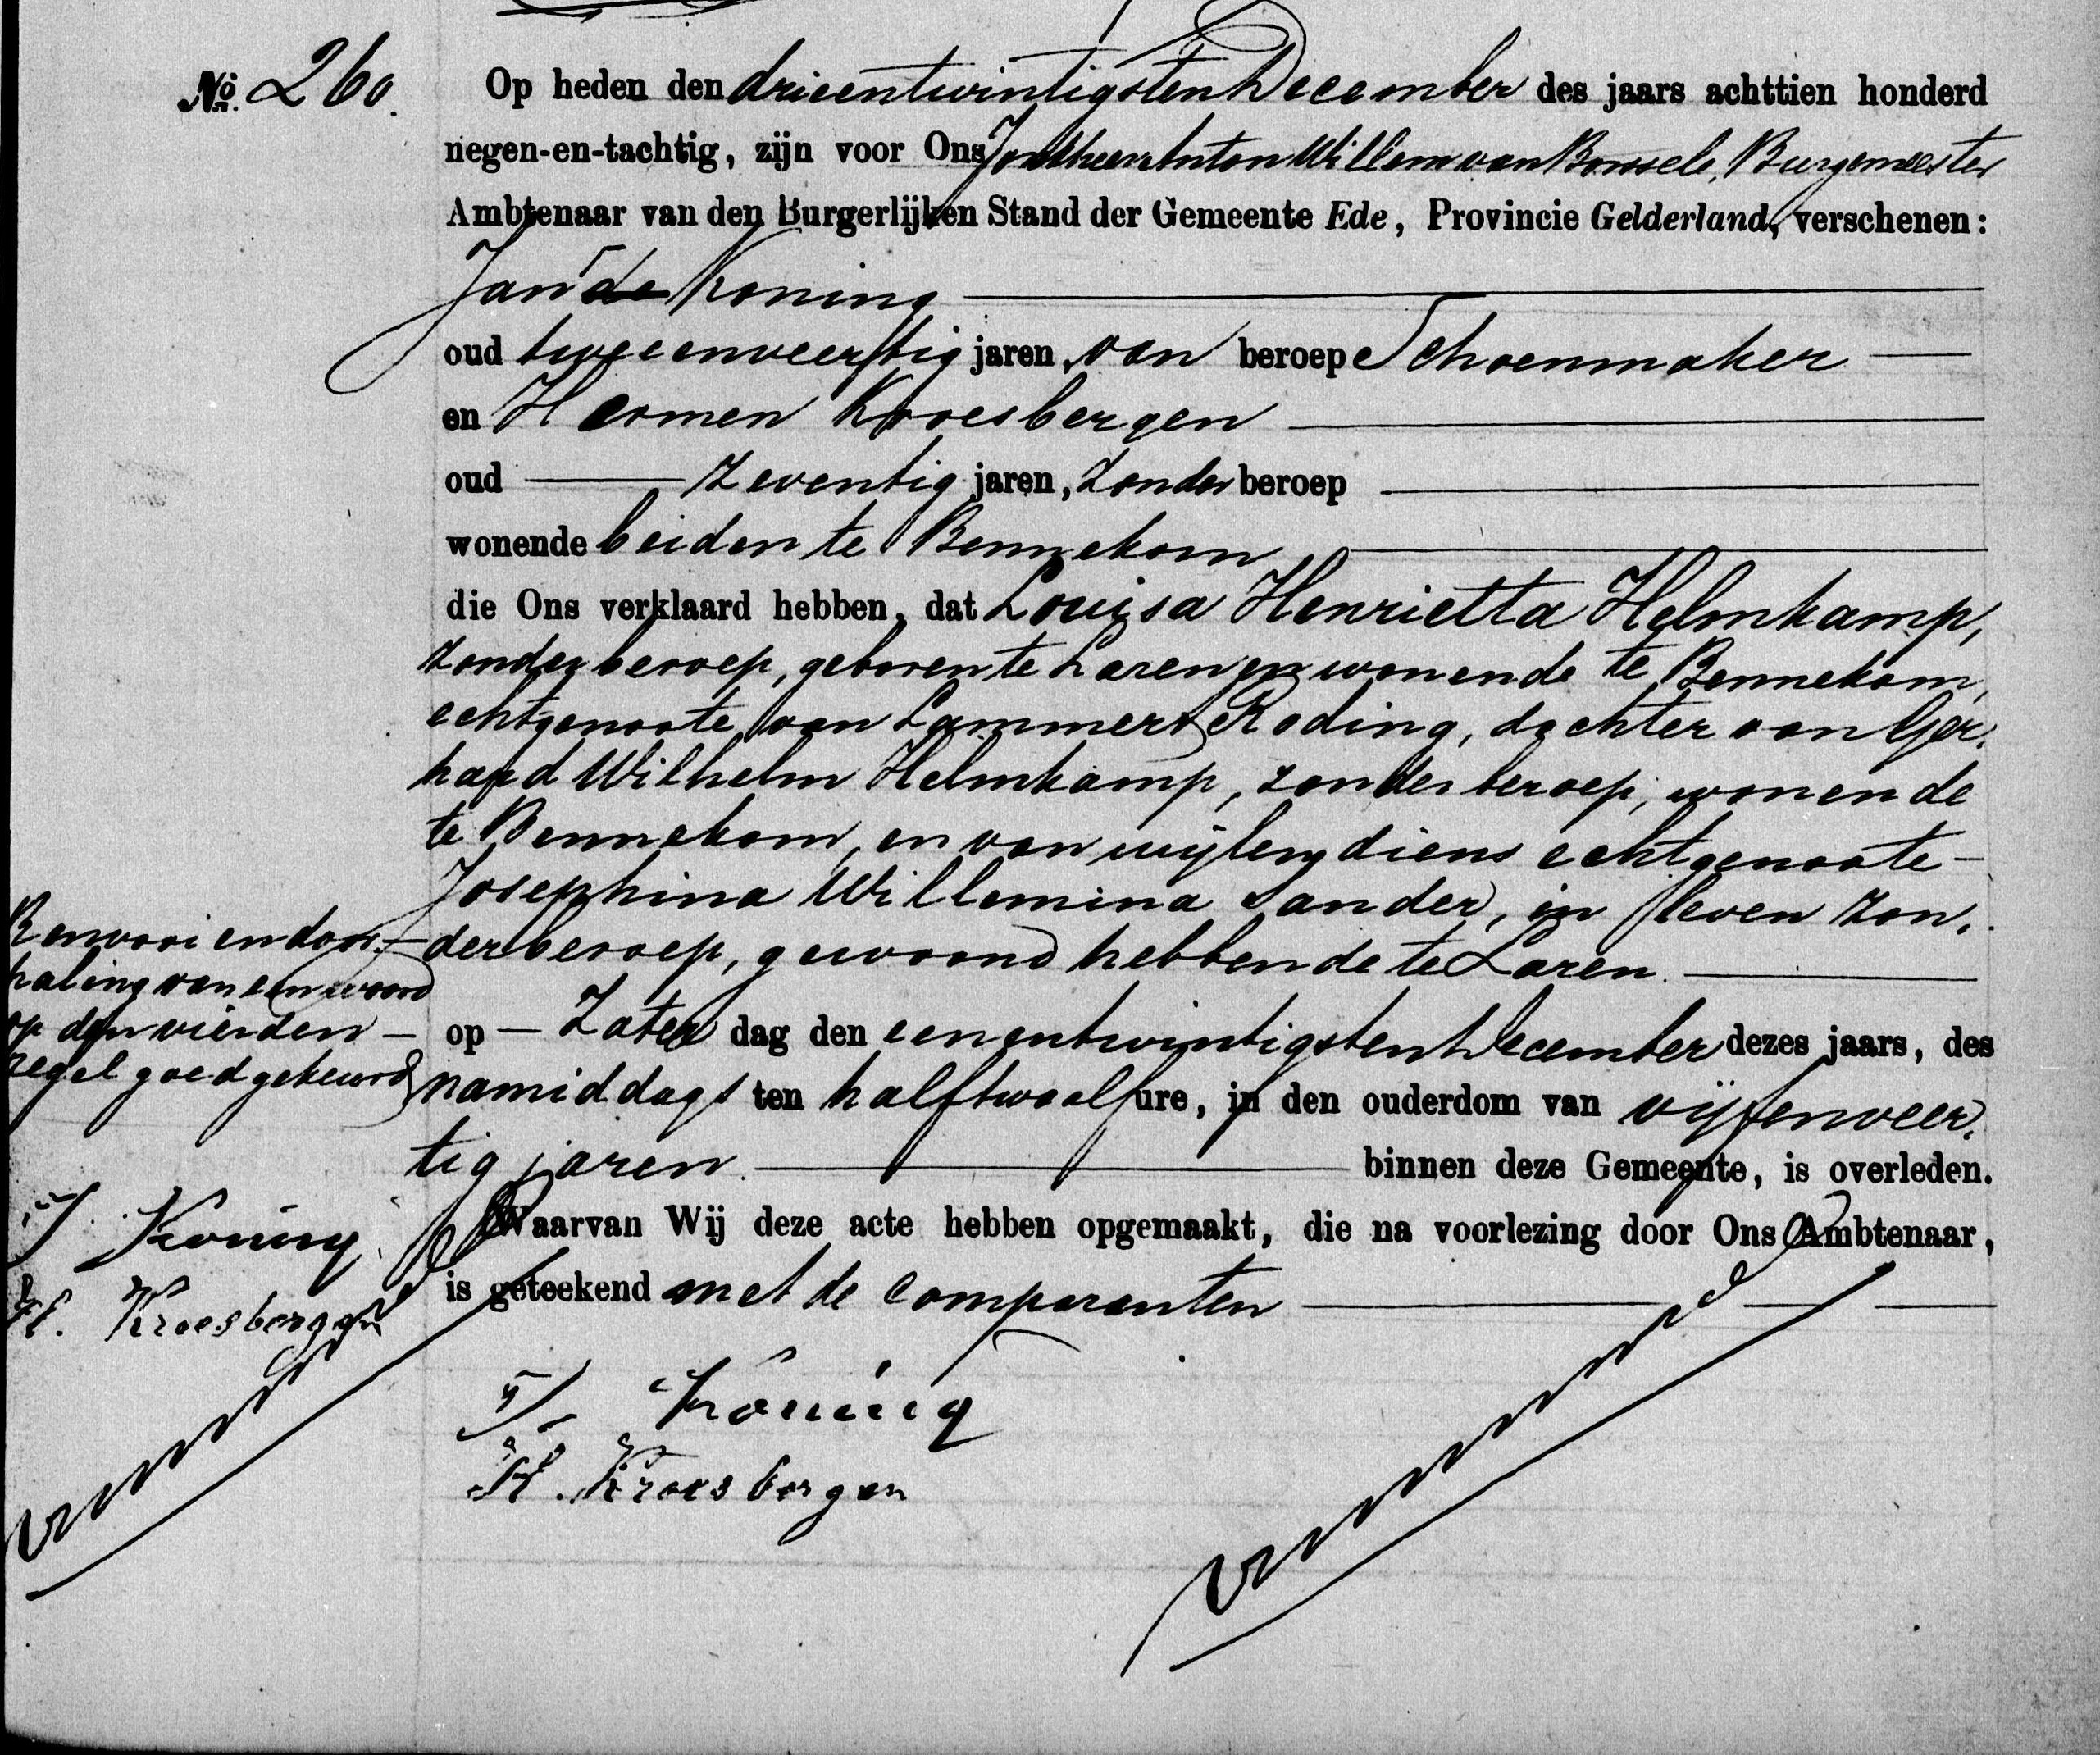 No. 260.
Op heden den drieentwintigsten December des jaars achttien honderd
negen-en-tachtig, zijn voor Ons Jonkheer Anton Willem van Borssele, Burgemeester
Ambtenaar van den Burgerlijken Stand der Gemeente Ede, Provincie Gelderland, verschenen:
Jan de Koning
oud tweeenveertig jaren, van beroep Schoenmaker
en Harmen Kroesbergen
oud zeventig jaren, zonder beroep
wonende beiden te Bennekom
die Ons verklaard hebben, dat Louisa Henrietta Helmkamp,
zonder beroep, geboren te Laren en wonende te Bennekom,
echtgenoote van Lammert Roding, dochter van Ger-
hard Wilhelm Helmkamp, zonder beroep, wonende
te Bennekom, en van wijlen diens echtgenoote
Josephina Willemina Sander, in leven zon-
der beroep, gewoond hebbende te Laren.
op Zater dag den eenentwintigsten December dezes jaars, des
namiddags ten halftwaalf ure, in den ouderdom van vijfenveer-
tig jaren. binnen deze Gemeente, is overleden.
Waarvan Wij deze acte hebben opgemaakt, die na voorlezing door Ons Ambtenaar,
is geteekend met de comparanten
J. Koning
H. Kroesbergen
Renvooi en door-
haling van een woord
op den vierden
regel goedgekeurd
J Koning
H. Kroesbergen